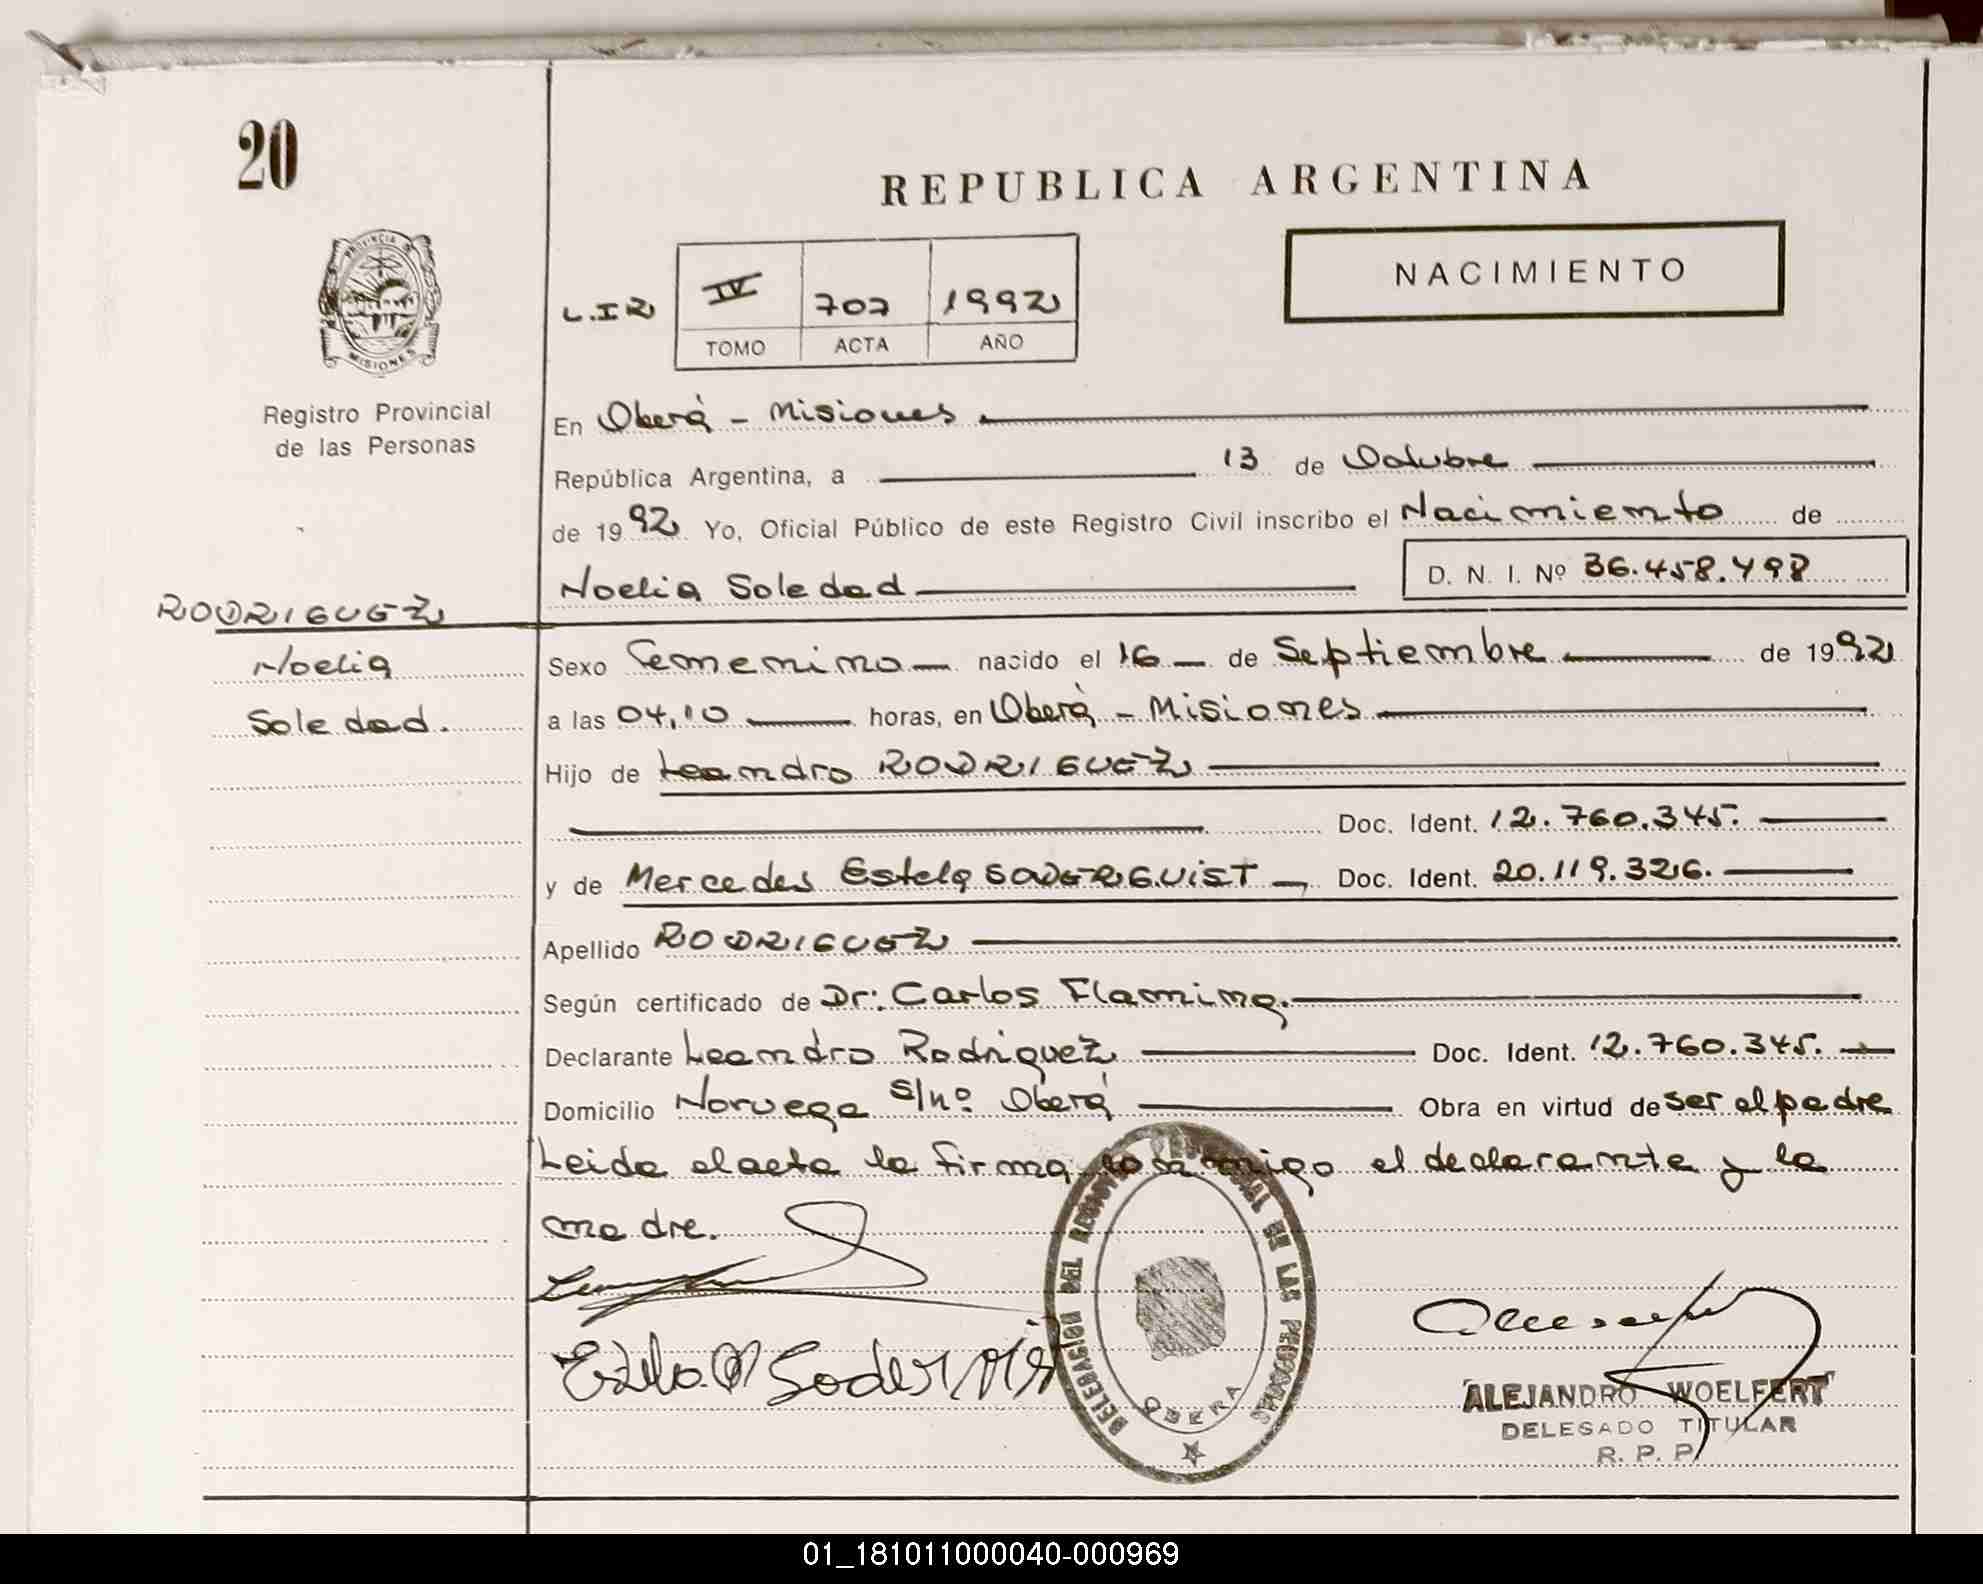 20
REPUBLICA ARGENTINA
NACIMIENTO
PROVINCIA DE MISIONES
Registro Provincial
de las Personas
L.I2 IV 707 1992
TOMO ACTA AÑO
En Oberá - Misiones
República Argentina, a 13 de Octubre
de 1992 Yo, Oficial Público de este Registro Civil inscribo el Nacimiento de
Noelia Soledad D. N. I. Nº 36.458.498
RODRIGUEZ
Noelia
Soledad.
Sexo Femenino nacido el 16 de Septiembre de 1992
a las 04,10 horas, en Oberá - Misiones
Hijo de Leandro RODRIGUEZ
Doc. Ident. 12.760.345.
y de Mercedes Estela SODERGUIST Doc. Ident. 20.119.326.
Apellido RODRIGUEZ
Según certificado de Dr: Carlos Flaming.
Declarante Leandro Rodriguez Doc. Ident. 12.760.345.
Domicilio Noruega S/nº Oberá Obra en virtud de ser el padre
Leida el acta la firma conmigo el declarante y la
madre.
DELEGACION DEL REGISTRO PROVINCIAL DE LAS PERSONAS
OBERA
ALEJANDRO WOELFERT
DELEGADO TITULAR
R. P. P.
01_181011000040-000969